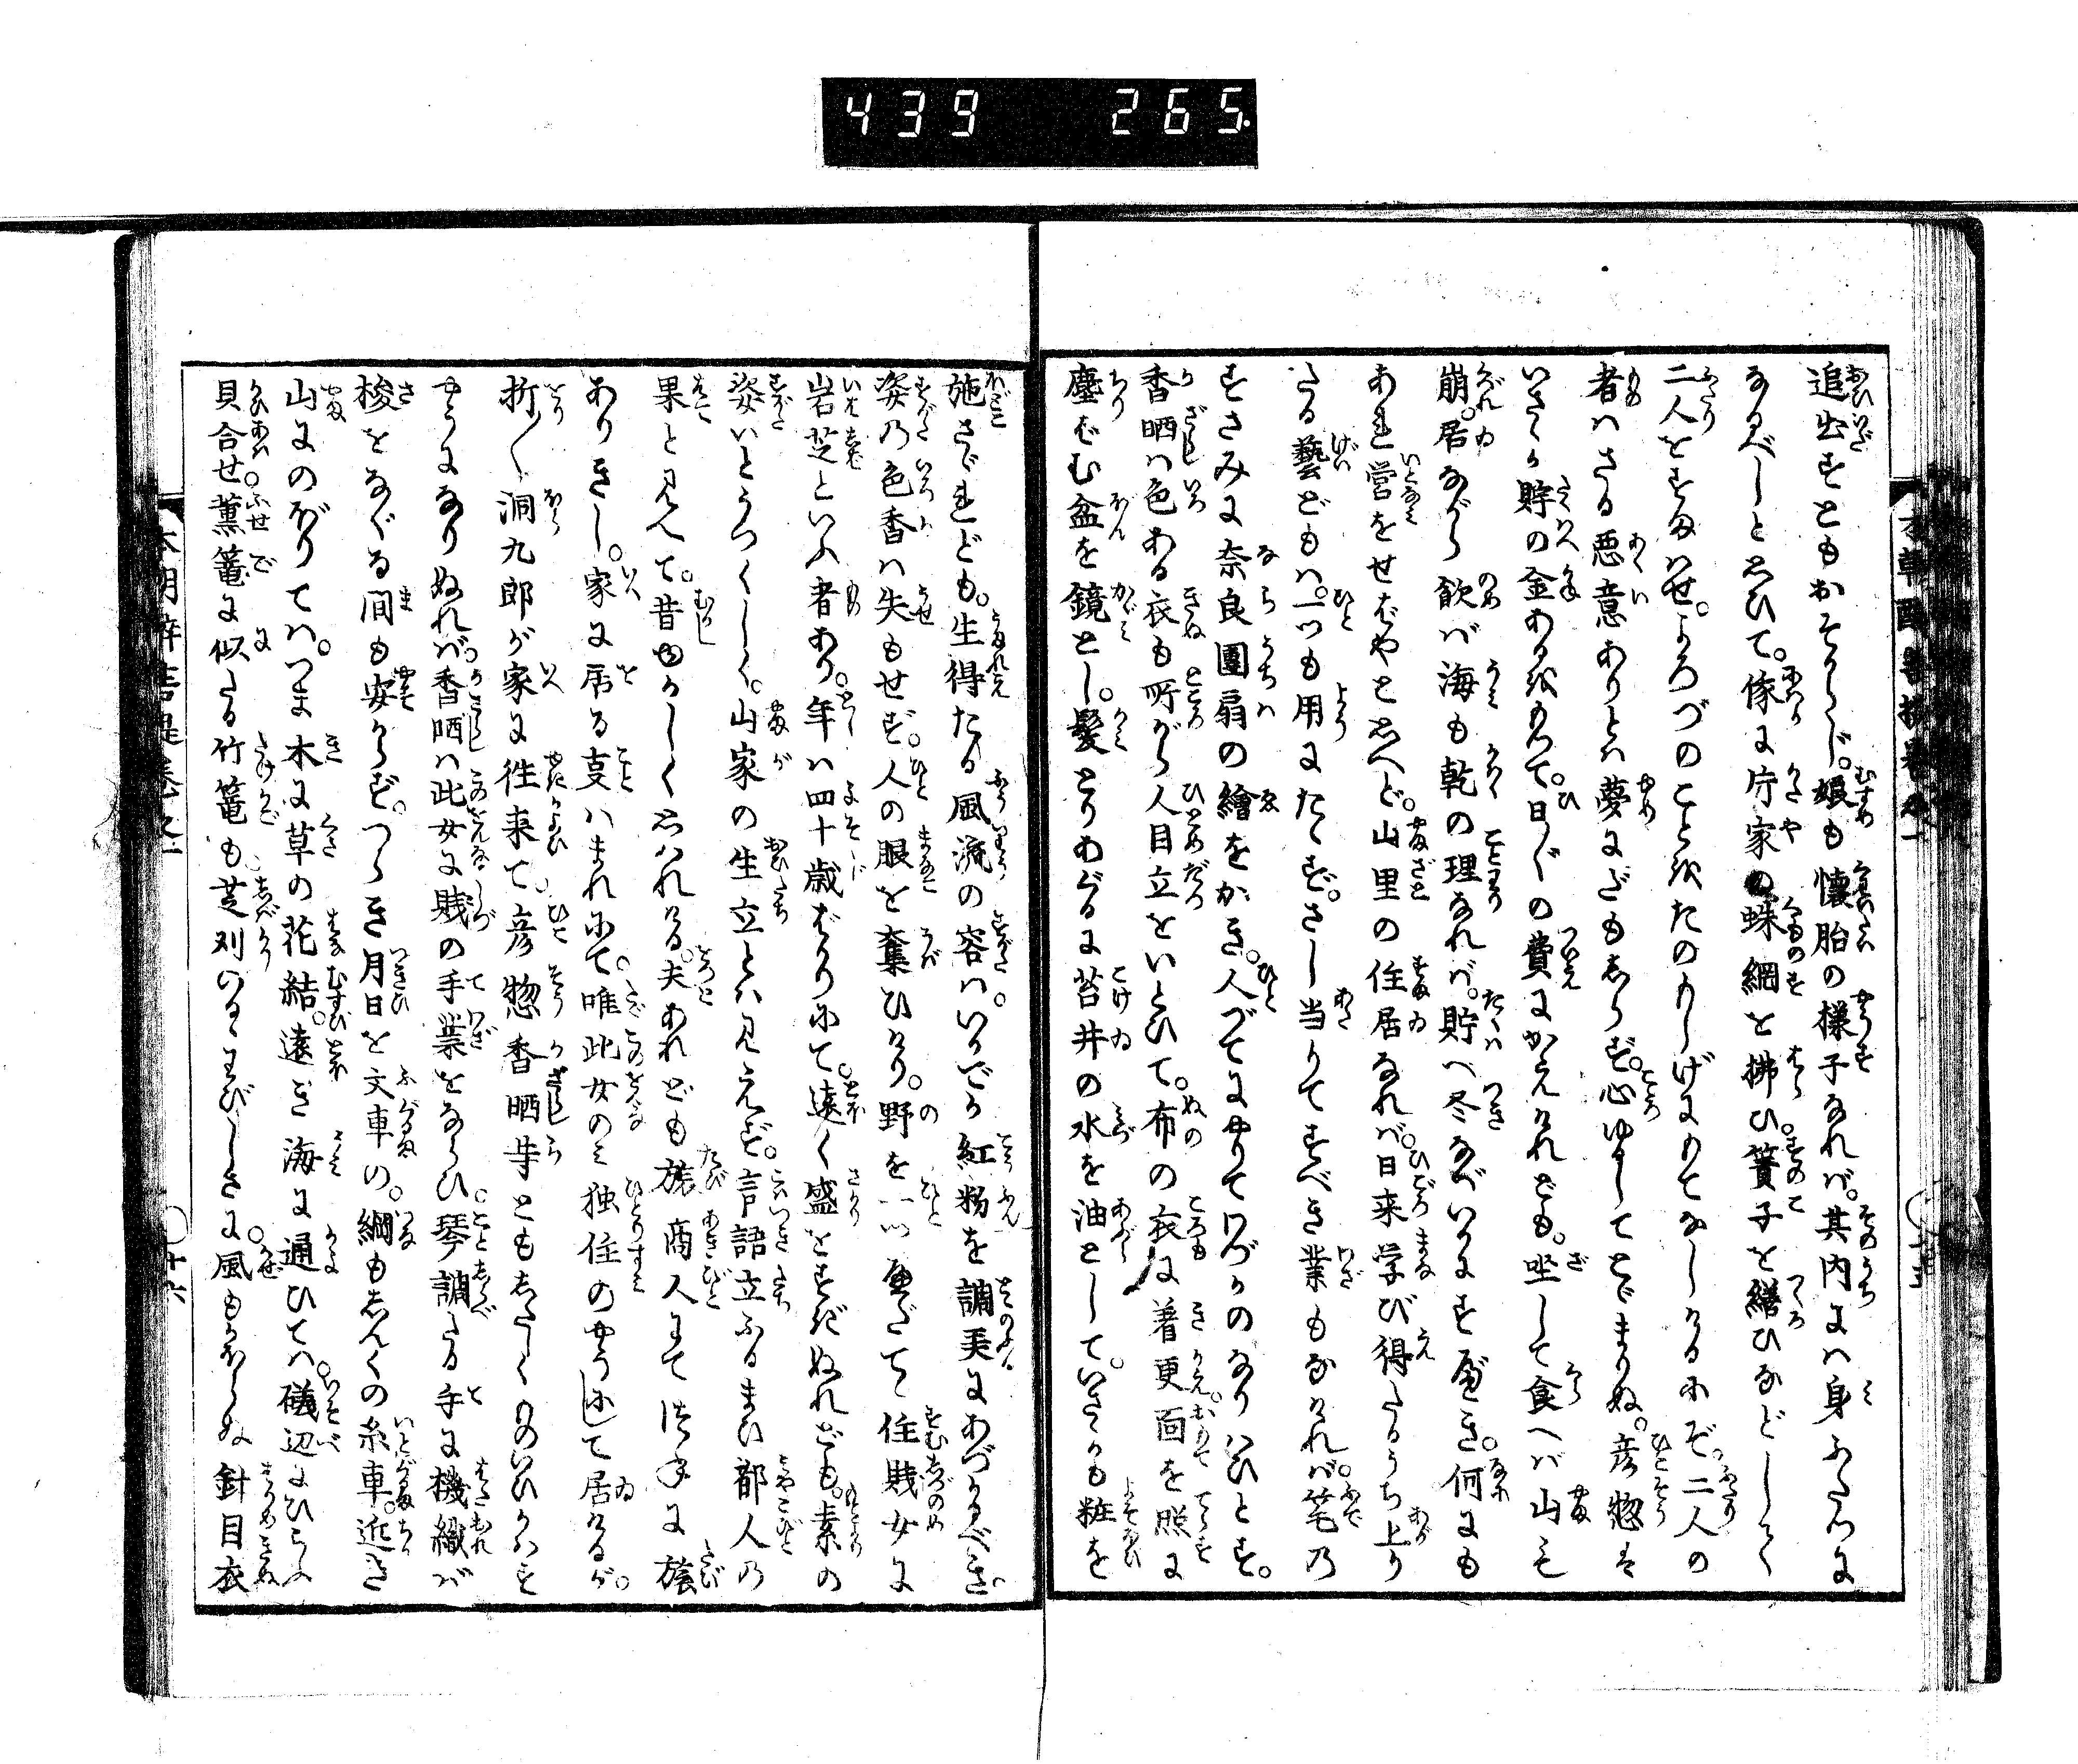 439 265
追出すともかそからじ。娘も懐胎の様子なれバ。其内にハ身ふたつに
なるべしと思ひて。傍に庁家の蛛網を拂ひ。簀子を繕ひなどして
二人をすまハせ。よろづのことをたのもしげにもてなしけるにぞ。二人の
者ハさる悪意ありとハ夢にだもしらず。心ゆるしてとゞまりぬ。彦惣は
いさゝか貯の金あるをもつて。日〻の費にかえけれども。坐して食へバ山も
崩。居ながら飲バ海も乾の理なれバ。貯へ尽なバいかにすべき。何にも
あれ営をせばやと思へど。山里の住居なれバ。日来学び得たるうち上り
たる藝どもハ。一つも用にたゝず。さし当りてすべき業もなけれバ。筆の
すさみに奈良團扇の繪をかき。人づてにやりてわづかのなりハひとす。
香晒ハ色ある衣も所がら人目立をいとひて。布の衣に着更。面を照に
塵ばむ盆を鏡とし。髪とりあぐるに苔井の水を油として。いさゝかも粧を
施さゞれども。生得たる風流の容ハ。いかでか紅粉を調美にあづかるべき。
姿の色香ハ失もせず。人の眼を奪ひけり。野を一ツ隔てゝ住賎女に
岩芝といふ者あり。年ハ四十歳ばかりにて。遠く盛をすぎぬれども。素の
姿いとうつくしく。山家の生立とハ見えず。言語立ふるまひ都人の
果と見へて。昔ゆかしく思ハれける。夫あれども旅商人にて常に旅
ありきし。家に居る事ハまれにて。唯此女のミ独住のやうにして居けるが。
折〱洞九郎が家に徃来て。彦惣香晒等ともしたしくものいひかハす
やうになりぬれバ。香晒ハ此女に賎の手業をならひ。琴調たる手に機織バ
梭をなぐる間も安からず。つらき月日を文車の。綱もしんくの糸車。近き
山にのぼりてハ。つま木に草の花結。遠き海に通ひてハ。磯辺にひろふ
貝合せ。薫篭に似たる竹篭も。芝刈いるゝわびしさに。風もかほらぬ針目衣
本朝酔菩提巻之一
十六